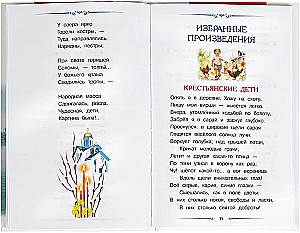 У озера ярко
Горели костры, —
Туда направлялись,
Нарядны, пестры,
При свете горящей
Соломы, — толпы...
У божьего храма
Сходились тропы, —
Народная масса
Сдвигалась, росла.
Чудесная, дети,
Картина была!..
ИЗБРАННЫЕ
ПРОИЗВЕДЕНИЯ
КРЕСТЬЯНСКИЕ ДЕТИ
Опять я в деревне. Хожу на охоту,
Пишу мои вирши — живется легко.
Вчера, утомленный ходьбой по болоту,
Забрел я в сарай и заснул глубоко.
Проснулся: в широкие щели сарая
Глядятся веселого солнца лучи.
Воркует голубка; над крышей летая,
Кричат молодые грачи,
Летит и другая какая-то птица —
По тени узнал я ворону как раз;
Чу! шепот какой-то... а вот вереница
Вдоль щели внимательных глаз!
Всё серые, карие, синие глазки —
Смешались, как в поле цветы.
В них столько покоя, свободы и ласки,
В них столько святой доброты!